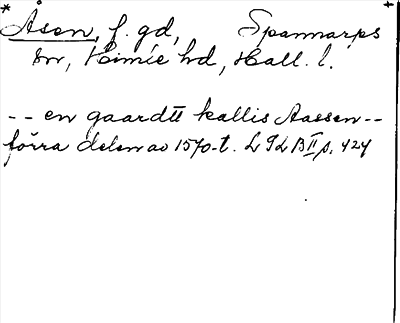 * Åsen, f. gd, Spannarps +
sn, Himle hd, Hall. l.
-- en gaardtt kallis Aassen --
förra delen av 1570-t. L I L B II p. 424